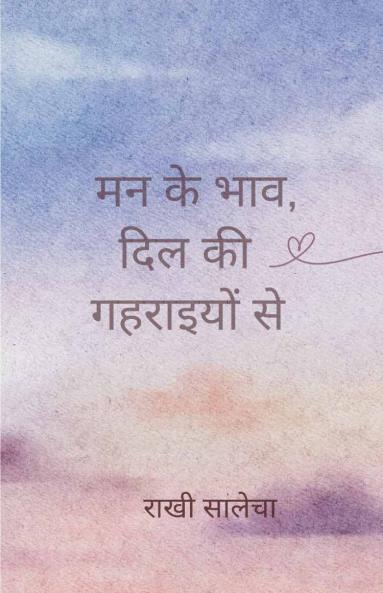 मन के भाव,
दिल की
गहराइयों से
राखी सालेचा